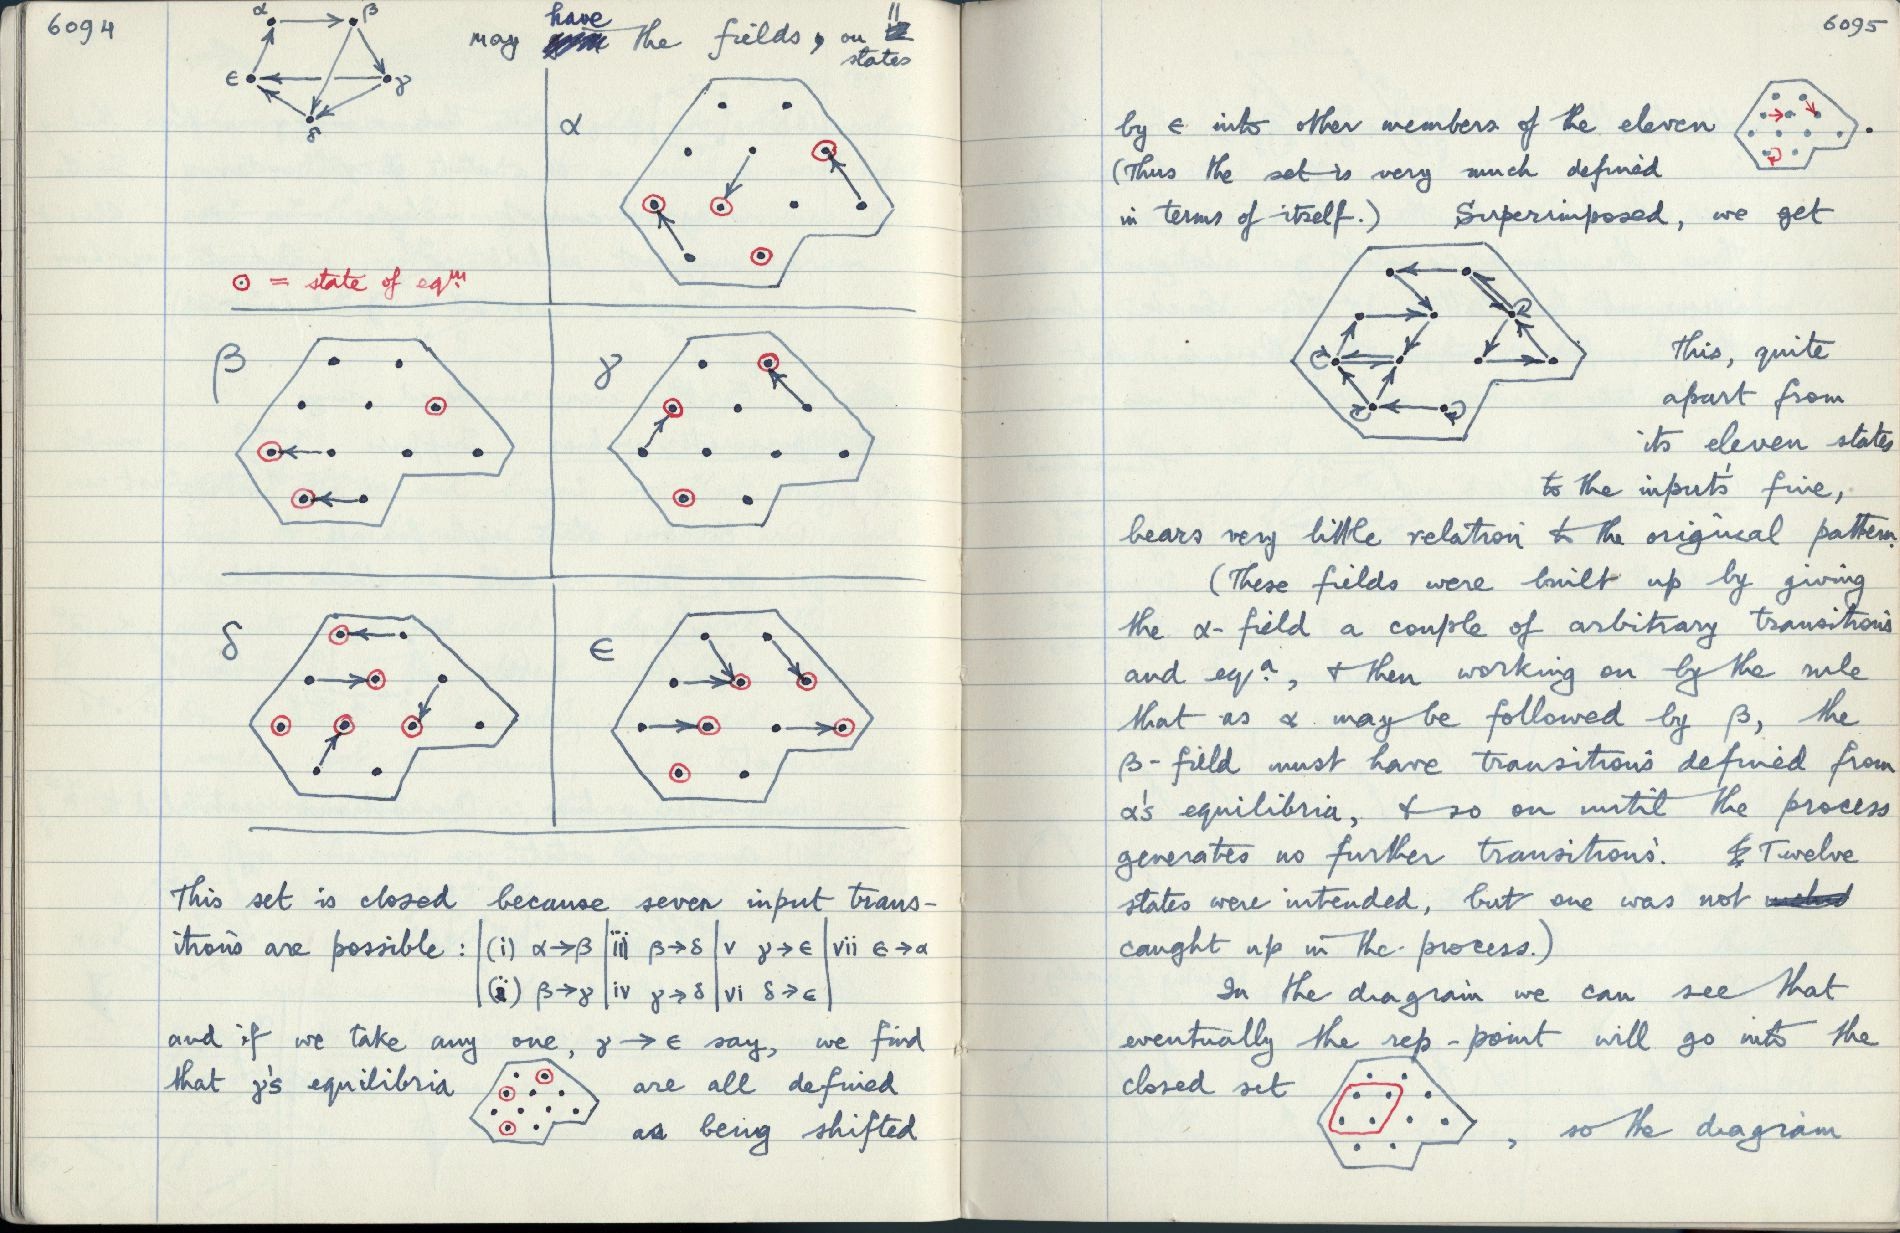 6094
α β
ε γ
δ
may have the fields, on 11
states
α
⊙ = state of eqm.
β
γ
δ
ε
This set is closed because seven input trans-
itions are possible : (i) α→β iii β→δ v γ→ε vii ε→α
(ii) β→γ iv γ→δ vi δ→ε
and if we take any one, γ→ε say, we find
that γ's equilibria are all defined
as being shifted
6095
by ε into other members of the eleven .
(Thus the set is very much defined
in terms of itself.) Superimposed, we get
This, quite
apart from
its eleven states
to the input's five,
bears very little relation to the original pattern.
(These fields were built up by giving
the α-field a couple of arbitrary transitions
and eqa., & then working on by the rule
that as α may be followed by β, the
β-field must have transitions defined from
α's equilibria, & so on until the process
generates no further transitions. Twelve
states were intended, but one was not
caught up in the process.)
In the diagram we can see that
eventually the rep-point will go into the
closed set , so the diagram